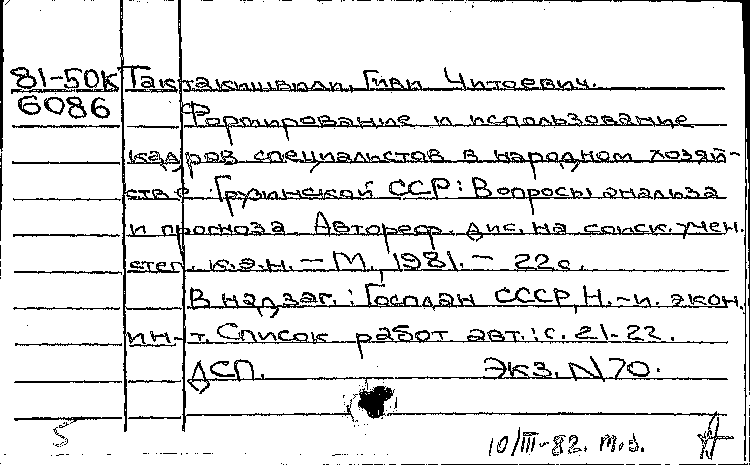 81-50К Тактакишвили, Гиви Читоевич.
6086 Формирование и использование
кадров специалистов в народном хозяй-
стве Грузинской ССР: Вопросы анализа
и прогноза. Автореф. дис. на соиск. учен.
степ. к.э.н. – М., 1981. – 22с.
В надзаг.: Госплан СССР, Н.-и. экон.
ин-т. Список работ авт.: с. 21-22.
ДСП. Экз. N 70.
5 10/III-82. т.з.